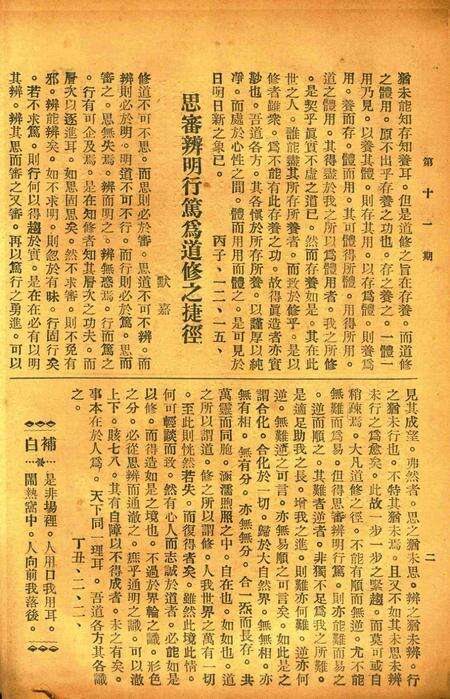 第十一期
猶未能知存知養耳。但是道修之旨在存養。而道修
之體用。原不出乎存養之功也。存之養之。一體一
用乃見。以養其體。則存其用。以存爲體。則養爲
用。養而存。體而用。其可得體所得。用得所用。
道之體用。其得盡於我之所以爲體用者。我之所修
。是契乎眞實不虛之道已。然而存養如是。其在此
世之人。誰能盡其所存所養者。而致於修乎。是以
修者雖衆。爲不能有此存養之功。故得眞造者亦實
尟也。吾道各方。其各愼於所存所養。以謹厚以純
凈。而處於心性之間。體而用用而體之。是可見於
日明日新之象已。 丙子、一二、一五、
思審辨明行篤爲道修之捷徑
默嘉
修道不可不思。而思則必於審。思道不可不辨。而
辨則必於明。明道不可不行。而行則必於篤。思而
審之。思無失焉。辨而明之。辨無惑焉。行而篤之
。行有可企及焉。是在知修者知其層次之功夫。而
層次以逐進耳。如思固思矣。然不求審。則不免有
邪。辨能辨矣。如不求明。則忽於有昧。行固行矣
。若不求篤。則行何以得趨於實。是在在必有以明
其辨。辨其思而審之又審。再以篤行之勇進。可以
二
見其成望。弗然者。思之猶未思。辨之猶未辨。行
之猶未行也。不特其猶未焉。且又不如其未思未辨
未行之爲愈矣。此故一步一步之緊趨。而莫可或自
稍疎焉。大凡道修之徑。不能有順而無逆。尤不能
無難而爲易。但得思審辨明行篤。則亦能難而易之
。逆而順之。其難者逆者。非獨不足爲我之所難。
是適足助我之長。增我之進。則難亦何難。逆亦何
逆。無難逆之可言。亦無易順之可言矣。如此是之
謂合化。合化於一切。歸於大自然界。無無相。亦
無有相。無有分。亦無無分。合一炁而長存。共
萬靈而同胞。涵濡煦照之中。自在也。如如也。道
之所以謂道。修之所以謂修。人我世界之萬有一切
。至此則恍然若失。而復得者矣。雖然此境此情。
何可輕談而致。然有心人而志誠於道者。必能如是
以修。而得造如是之境也。不過於界輪之識。形色
之分。必從思辨而通澈之。乎通明之識。可以澈
上下。賅七八。其有自障以不得成者。未之有矣。
事本在於人爲。天下同一理耳。吾道各方其各識
之。 丁丑、二、二、
補白
是非場裡。人用口我用耳。
鬧熱窩中。人向前我落後。